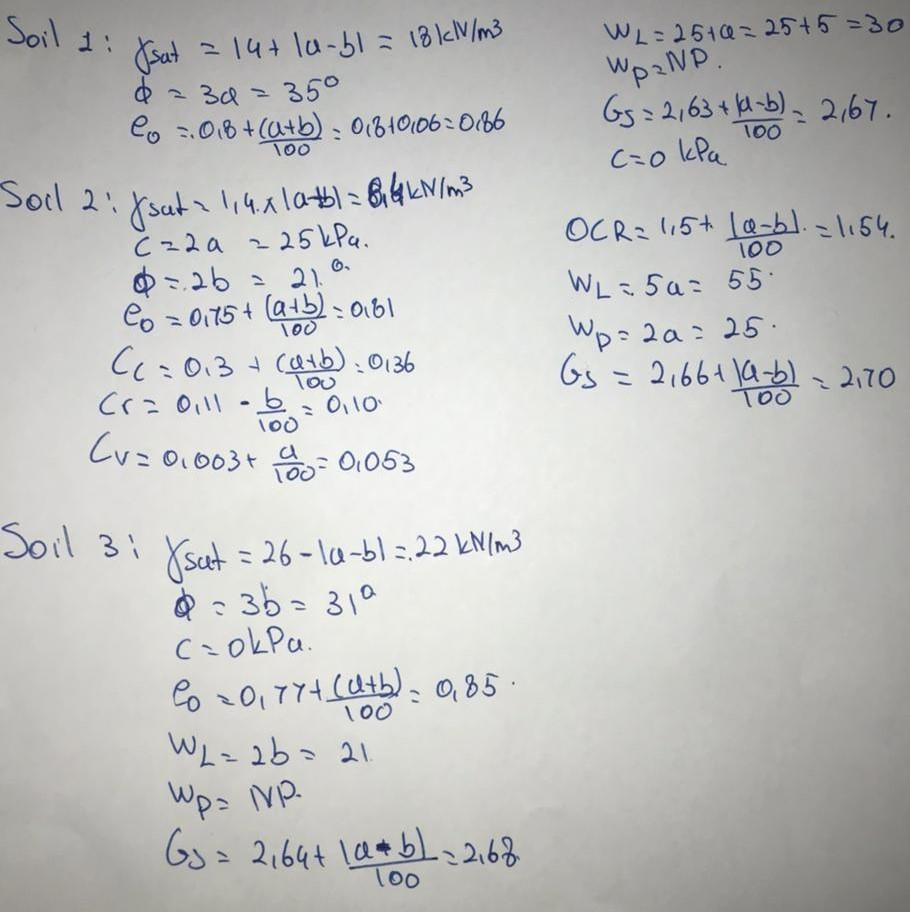 Soil 1: γsat = 14 + |a-b| = 18 kN/m3
ϕ = 3a = 35°
e0 = 0.8 + (a+b)/100 = 0,8+0,06=0,86
WL = 25+a = 25+5 = 30
Wp=NP.
Gs = 2,63 + |a-b|/100 = 2,67.
C=0 kPa
Soil 2: γsat = 1,4 x |a+b| = 8,4 kN/m3
C = 2a = 25 kPa.
ϕ = 2b = 21°
e0 = 0,75 + (a+b)/100 = 0,81
Cc = 0.3 + (a+b)/100 = 0,36
Cr = 0,11 - b/100 = 0,10
Cv = 0,003 + a/100 = 0,053
OCR = 1,5 + |a-b|/100 = 1,54.
WL = 5a = 55
Wp = 2a = 25
Gs = 2,66 + |a-b|/100 = 2,70
Soil 3: γsat = 26 - |a-b| = 22 kN/m3
ϕ = 3b = 31°
C = 0 kPa.
e0 = 0,77 + (a+b)/100 = 0,85
WL = 2b = 21
Wp = NP.
Gs = 2,64 + |a-b|/100 = 2,68